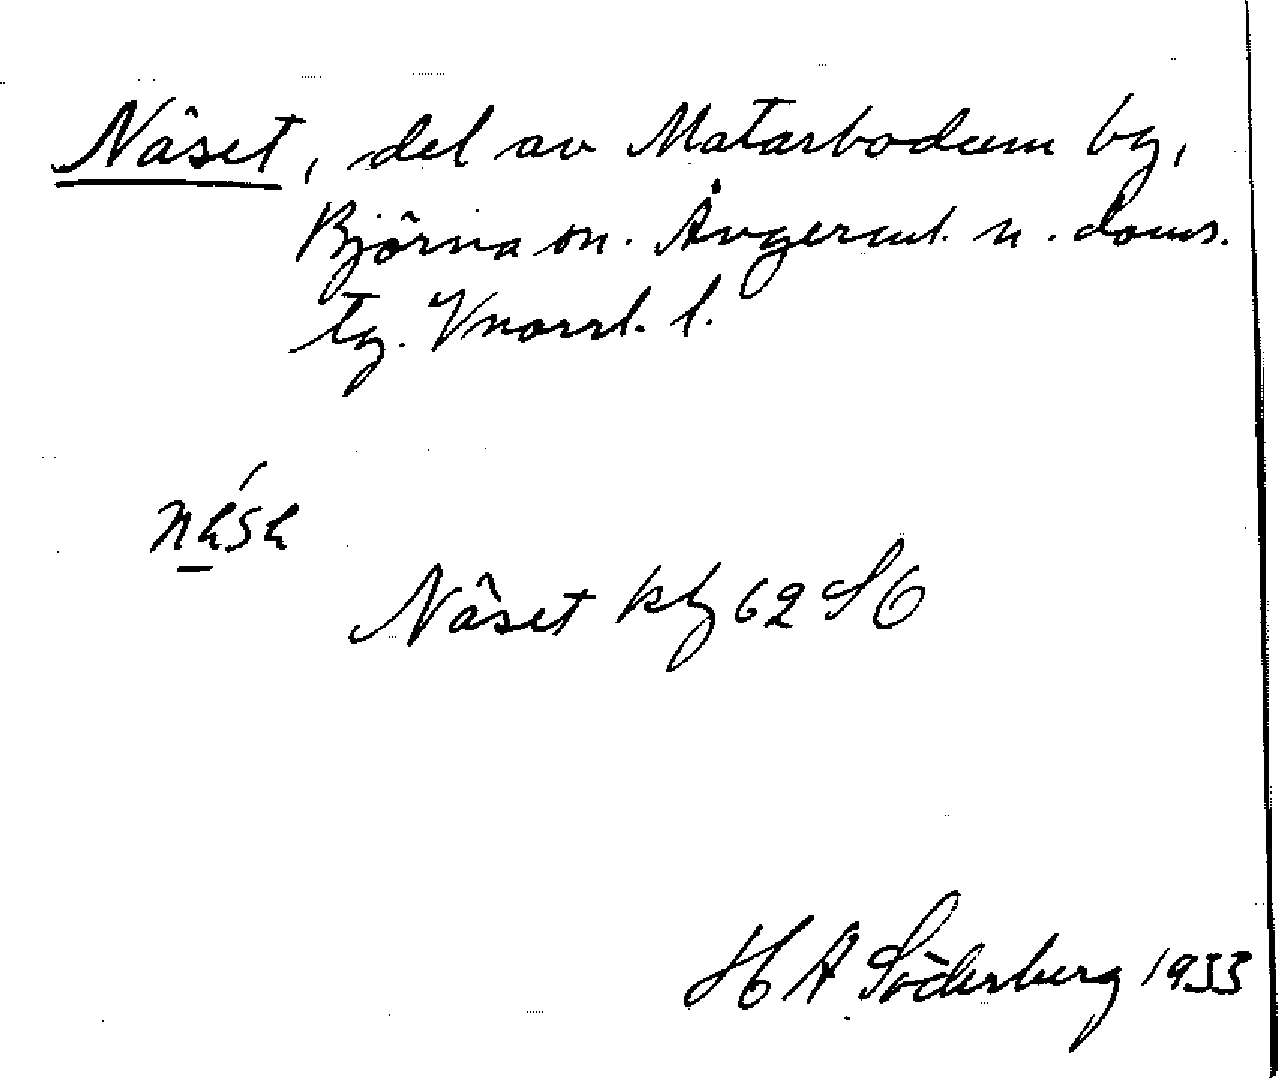 Näset, del av Matarbodum by,
Björna sn. Ångerml. n. doms.
tg. Vnorrl. l.
Näset kbl 62 S6
H A Söderberg 1933